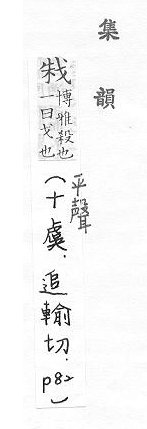 集韻
博雅殺也
一曰戈也
平聲
(十虞.追輸切.p82)